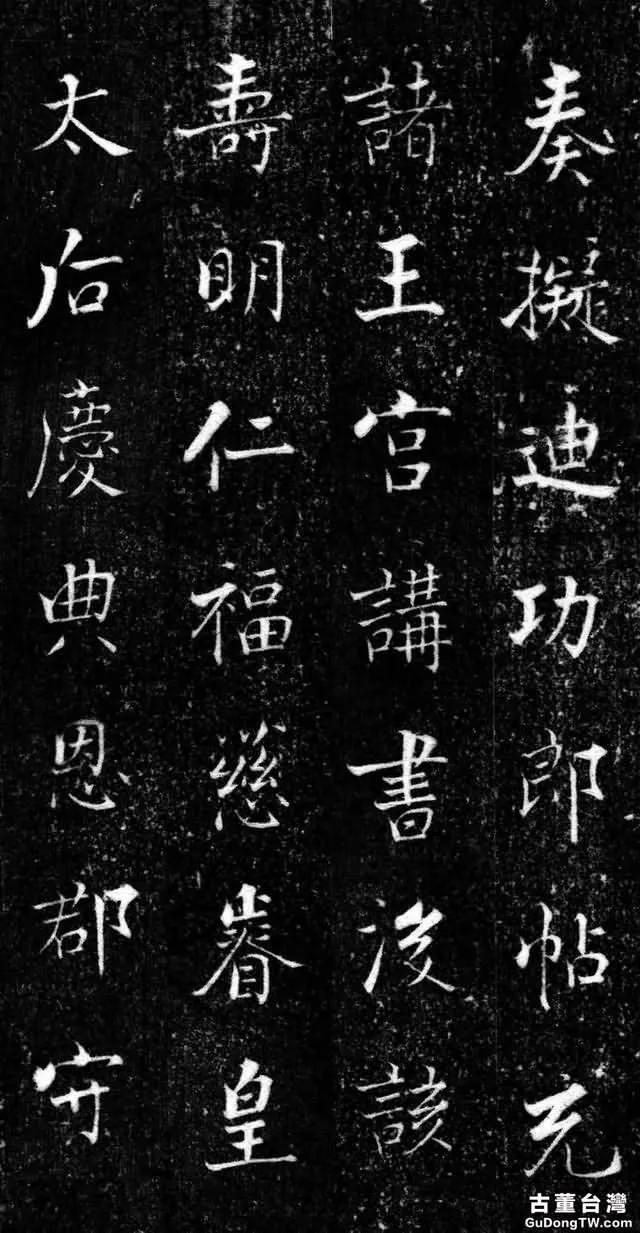 奏擬迪功郎帖充
諸王宮講書後該
壽明仁福慈睿皇
太后慶典恩郡守
古董台灣
GuDongTW.com